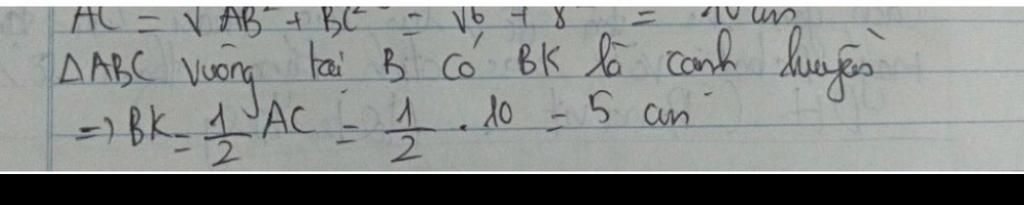 AC = √AB² + BC² = √6 + 8 = 10 cm
ΔABC vuông tại B có BK là cạnh huyền
=> BK = 1/2 AC = 1/2 . 10 = 5 cm